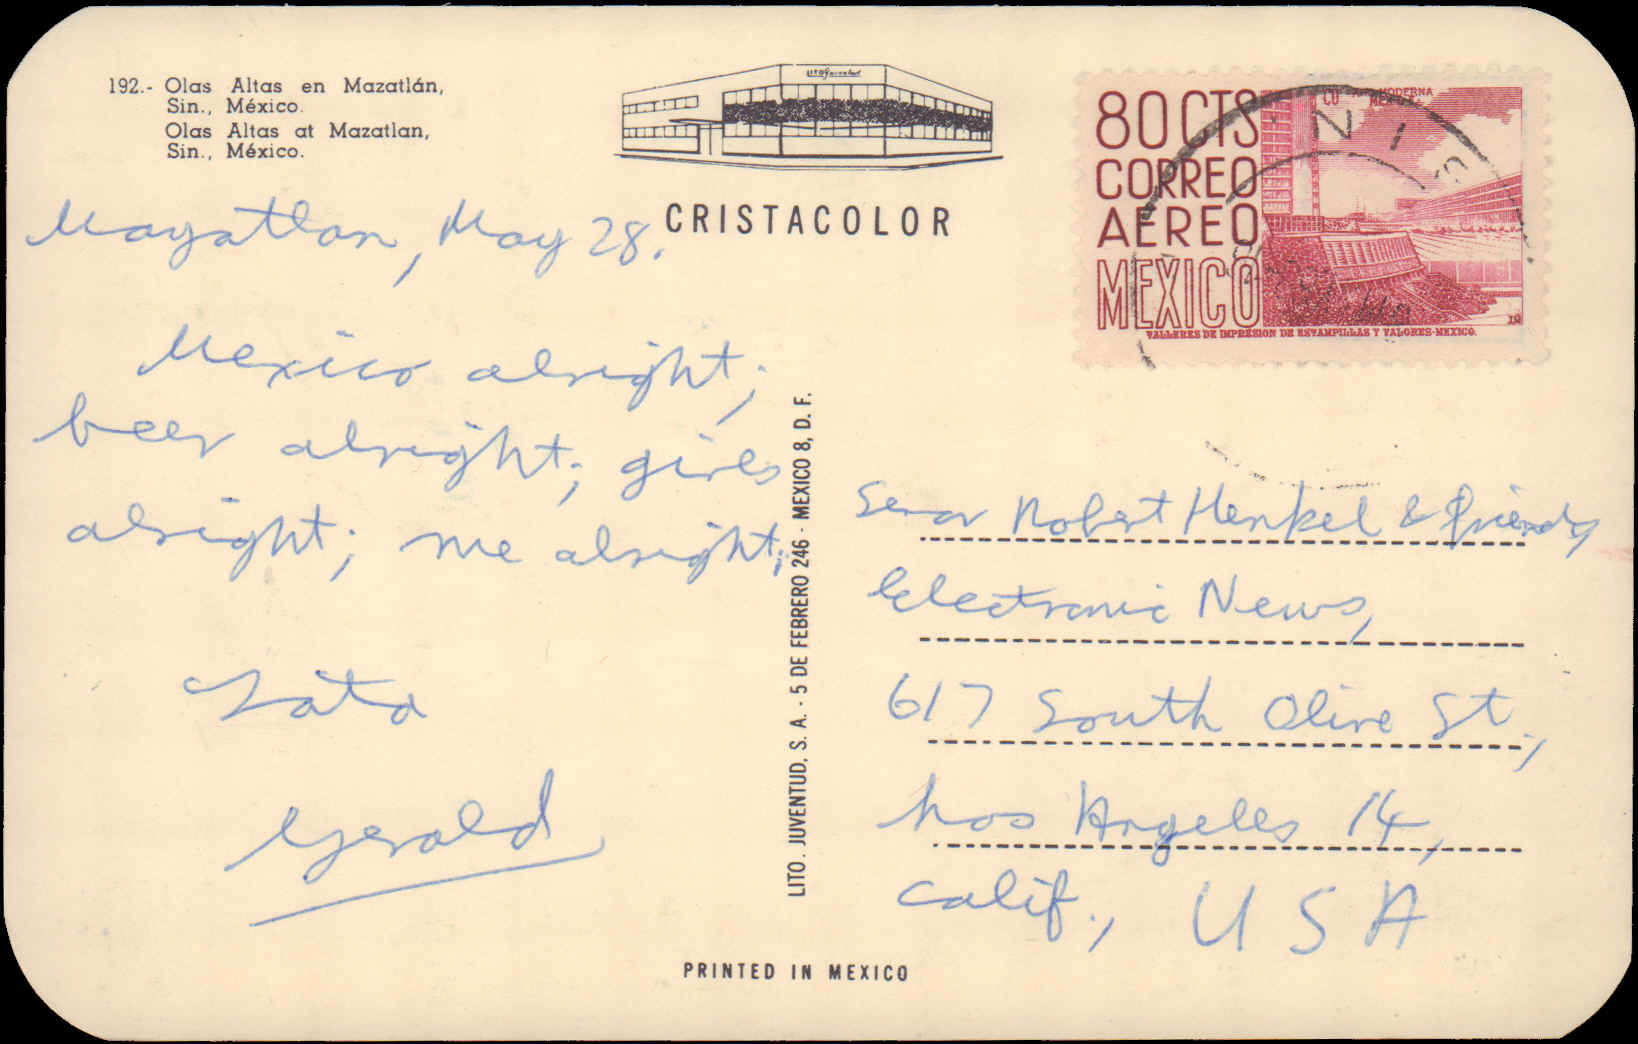 192.- Olas Altas en Mazatlán,
Sin., México.
Olas Altas at Mazatlan,
Sin., México.
CRISTACOLOR
80 CTS
CORREO
AEREO
MEXICO
CU MODERNA
MEX
TALLERES DE IMPRESION DE ESTAMPILLAS Y VALORES-MEXICO.
Mazatlan, May 28.
Mexico alright;
beer alright; girls
alright; me alright;
Tata
Gerald
LITO. JUVENTUD, S. A. - 5 DE FEBRERO 246 - MEXICO 8, D. F.
Senor Robert Henkel & friends,
Electronic News,
617 South Olive St.,
Los Angeles 14,
Calif., USA
PRINTED IN MEXICO